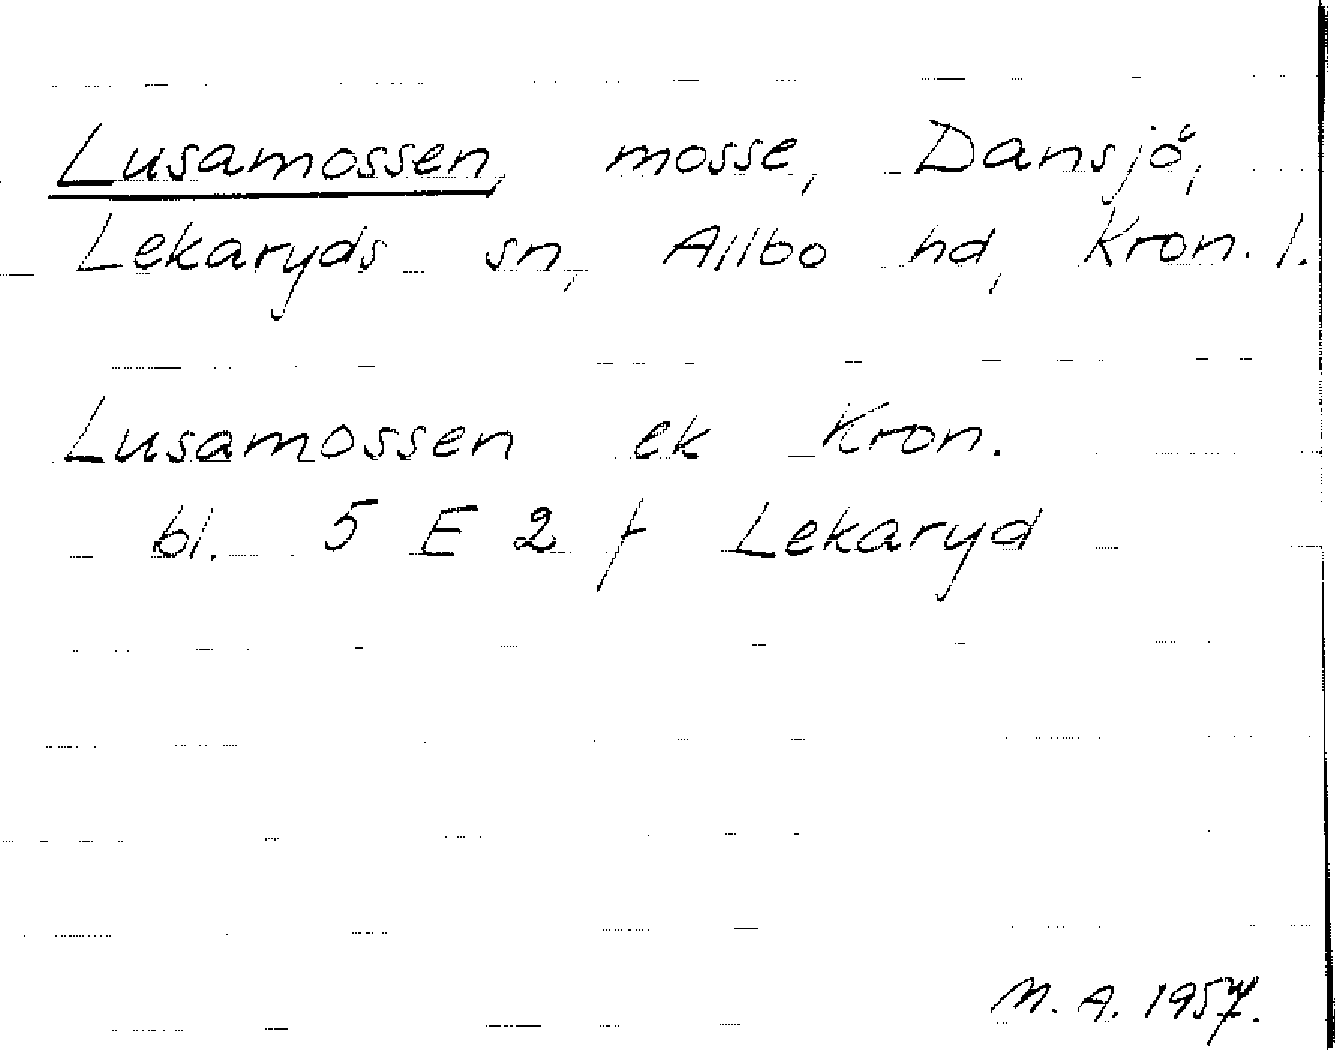 Lusamossen, mosse, Dansjö,
Lekaryds sn, Allbo hd, Kron. l.
Lusamossen ek Kron.
bl. 5 E 2 f Lekaryd
M. A. 1957.